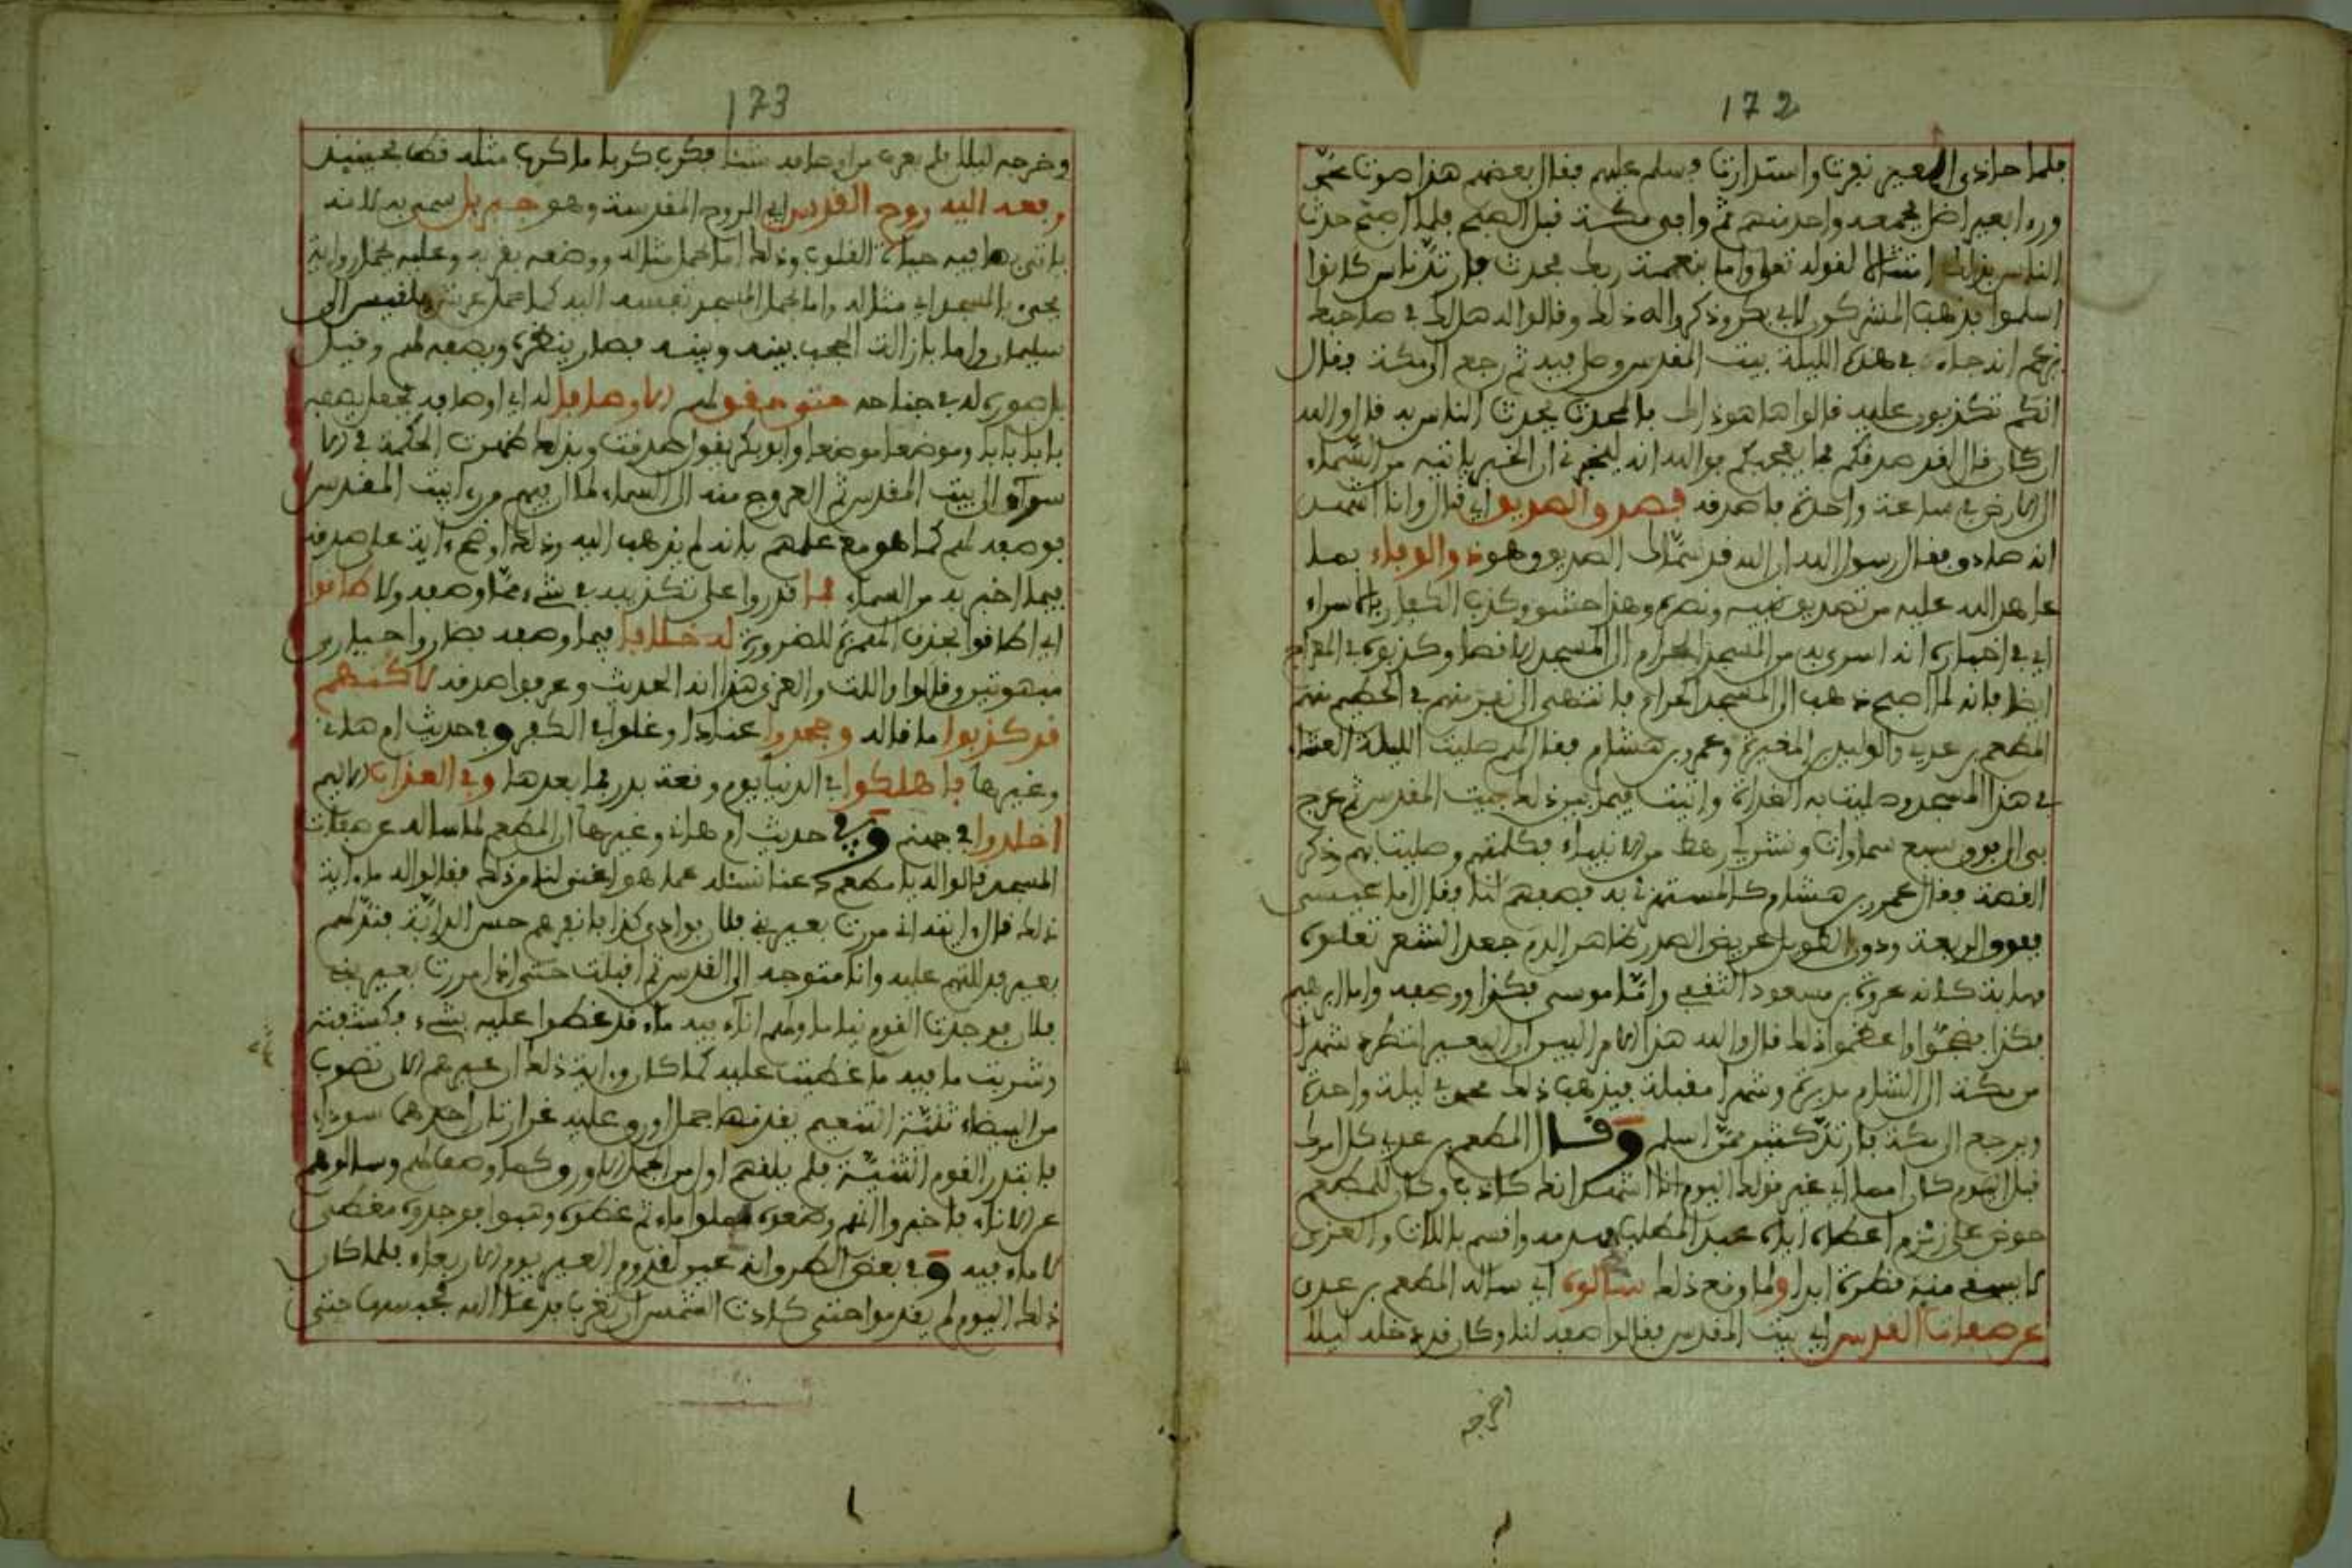 172
فلما حاذى العير نفرت واستدارت وسلم عليهم فقال بعضهم هذا صوت محمد
ورءا بعيرا ضل فجمعه واحد منهم ثم وافى مكة قبل الصبح فلما اصبح حدث
الناس بذلك امتثالا لقوله تعلى واما بنعمة ربك فحدث فارتد ناس كانوا
اسلموا فذهب المشركون لابي بكر وذكروا له ذلك وقالوا له هل لك في صاحبك
يزعم انه جاء في هذه الليلة بيت المقدس وصلى فيه ثم رجع الى مكة فقال
انكم تكذبون عليه قالوا ها هو ذاك بالمحدث يحدث الناس به قال والله
ان كان قال لقد صدق فما يعجبكم فوالله انه ليخبرني ان الخبر ياتيه من السماء
الى الارض في ساعة واحدة فاصدقه فصدق والصديق اي قال وانا اشهد
انه صادق فقال رسول الله ان الله قد سماك الصديق وهو ذو الوفاء بما
عاهد الله عليه من تصديق نبيه ونصره وهذا حشو وكذب الكفار بالاسراء
اي في اخباره انه اسرى به من المسجد الحرام الى المسجد الاقصا وكذبوه في المعراج
ايضا فانه لما اصبح ذهب الى المسجد الحرام فانتهى الى نفر منهم في الحطيم منهم
المطعم بن عدي والوليد بن المغيرة وعمرو بن هشام فقال لهم صليت الليلة العشاء
في هذا المسجد وصليت به الغداة واتيت فيما بين ذلك بيت المقدس ثم عرج
بي الى فوق سبع سماوات ونشر لي رهط من الانبياء فكلمتهم وصليت بهم وذكر
القصة فقال عمرو بن هشام كالمستهزئ به فصفهم لنا فقال اما عيسى
ففوق الربعة ودون الطويل عريض الصدر ظاهر الدم جعد الشعر تعلوه
صهابة كانه عروة بن مسعود الثقفي واما موسى فكذا ووصفه واما ابراهيم
فكذا فضجوا واعظموا ذلك قال والله هذا الامر البين ان العير لتطرد شهرا
من مكة الى الشام مدبرة وشهرا مقبلة فيذهب ذلك محمد في ليلة واحدة
ويرجع الى مكة فارتد كثير ممن اسلم وقال المطعم بن عدي كل امرك
قبل اليوم كان امما اي غير قولك اليوم انا اشهد انك كاذب وكان للمطعم
حوض على زمزم اعطاه اياه عبد المطلب فهدمه واقسم باللات والعزى
لا يسقي منه قطرة ابدا ولما وقع ذلك سالوه اي ساله المطعم بن عدي
عن صفات القدس اي بيت المقدس فقالوا صفه لنا وكان قد دخله ليلا
173
وخرج منه ليلا فلم يعرف من اوصافه شيئا فكرب كربا ما كرب مثله قط فحينئذ
رفعه اليه روح القدس اي الروح المقدسة وهو جبريل سمي به لانه
ياتي بما فيه حياة القلوب وذلك اما بحمل مثاله ووضعه بقربه وعليه يحمل رواية
يجيء بالمسجد اي مثاله واما بحمل المسجد نفسه اليه كما حمل عرش بلقيس الى
سليمان واما بازالة الحجب بينه وبينه فصار ينظره ويصفه لهم وقيل
بل صوره له في جناحه حتى حقق لهم الاوصاف له اي اوصافه فجعل يصفه
بابا بابا وموضعا موضعا وابو بكر يقول صدقت وبذلك ظهرت الحكمة في الا
سراء الى بيت المقدس ثم العروج منه الى السماء لما ان فيهم من رءا بيت المقدس
فوصفه لهم كما هو مع علمهم بانه لم يذهب اليه وذلك اوضح ءاية على صدقه
فيما اخبر به من السماء فما قدروا على تكذيبه في شيء مما وصفه ولا طاقوا
اي اطاقوا بحذف الهمزة للضرورة له خلافا فيما وصفه فصاروا حيارى
مبهوتين وقالوا واللت والعزى هذا انه الحديث وعرفوا صدقه لاكنهم
قد كذبوا ما قاله وجحدوا عنادا وغلوا في الكفر وفي حديث ام هانئ
وغيرها فاهلكوا في الدنيا يوم وقعة بدر فما بعدها وفي العذاب الاليم
اخلدوا في جهنم وفي حديث ام هانئ وغيرها ان المطعم لما ساله عن صفات
المسجد قالوا له يا مطعم دعنا نسئله عما هو اغنى لنا من ذلك فقالوا له ما ءاية
ذلك قال ءايته اني مررت بعير بني فلان بوادي كذا فانفرهم حس الدابة فند لهم
بعير فدللتهم عليه وانا متوجه الى القدس ثم اقبلت حتى اذا مررت بعير بني
فلان فوجدت القوم نياما ولهم اناء فيه ماء قد غطوا عليه بشيء فكشفته
وشربت ما فيه ثم غطيت عليه كما كان وءاية ذلك ان عيرهم الان تصوب
من البيضاء ثنية التنعيم يقدمها جمل اورق عليه غرارتان احدهما سوداء
فابتدر القوم الثنية فلم يلقهم اول من الجمل الاورق كما وصف لهم وسالوهم
عن الاناء فاخبروا انهم وضعوه مملوا ماء ثم غطوه وهبوا فوجدوه مغطى
لا ماء فيه وفي بعض الطرق انه عين لقدوم العير يوم الاربعاء فلما كان
ذلك اليوم لم يقدموا حتى كادت الشمس ان تغرب فدعا الله فحبسها حتى